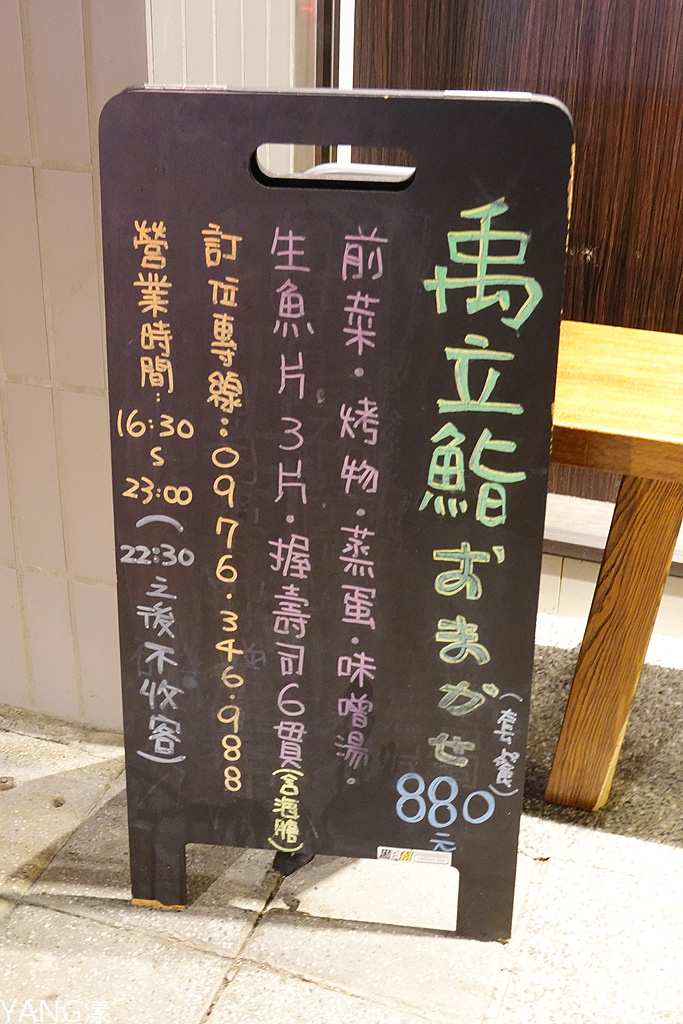 禹立鮨おまかせ
(套餐)
880元
前菜・烤物・蒸蛋・味噌湯・
生魚片3片・握壽司6貫(含海膽)
訂位專線:0976・346・988
營業時間:16:30
S
23:00(22:30之後不收客)
YANG漾